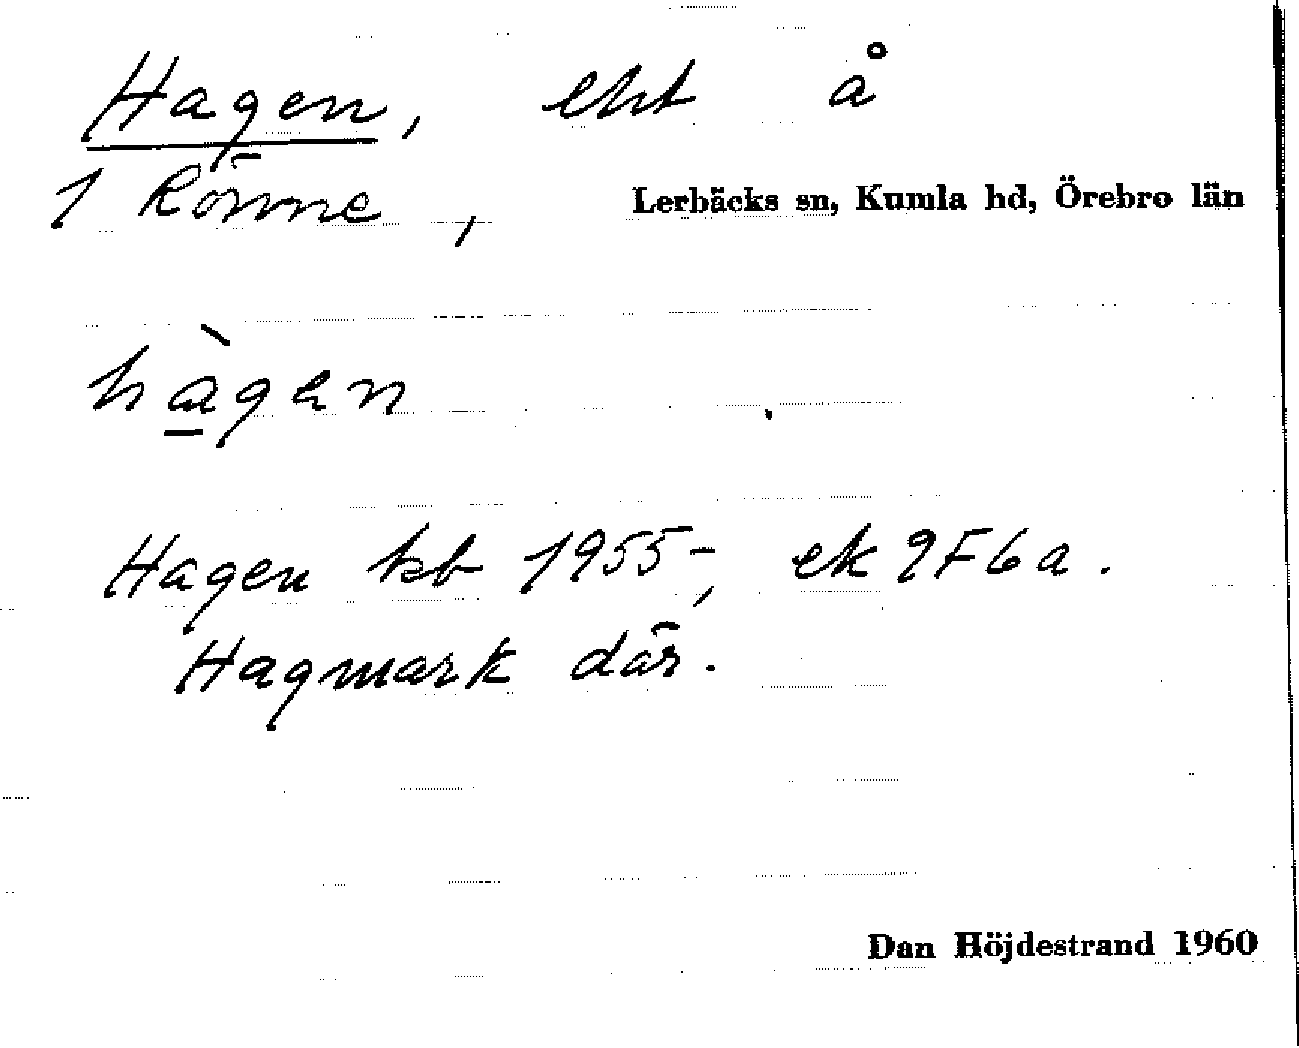 Hagen, lht å
1 Rönne,
Lerbäcks sn, Kumla hd, Örebro län
hàgen
Hagen kb 1955-, ek 9F6a.
Hagmark där.
Dan Höjdestrand 1960